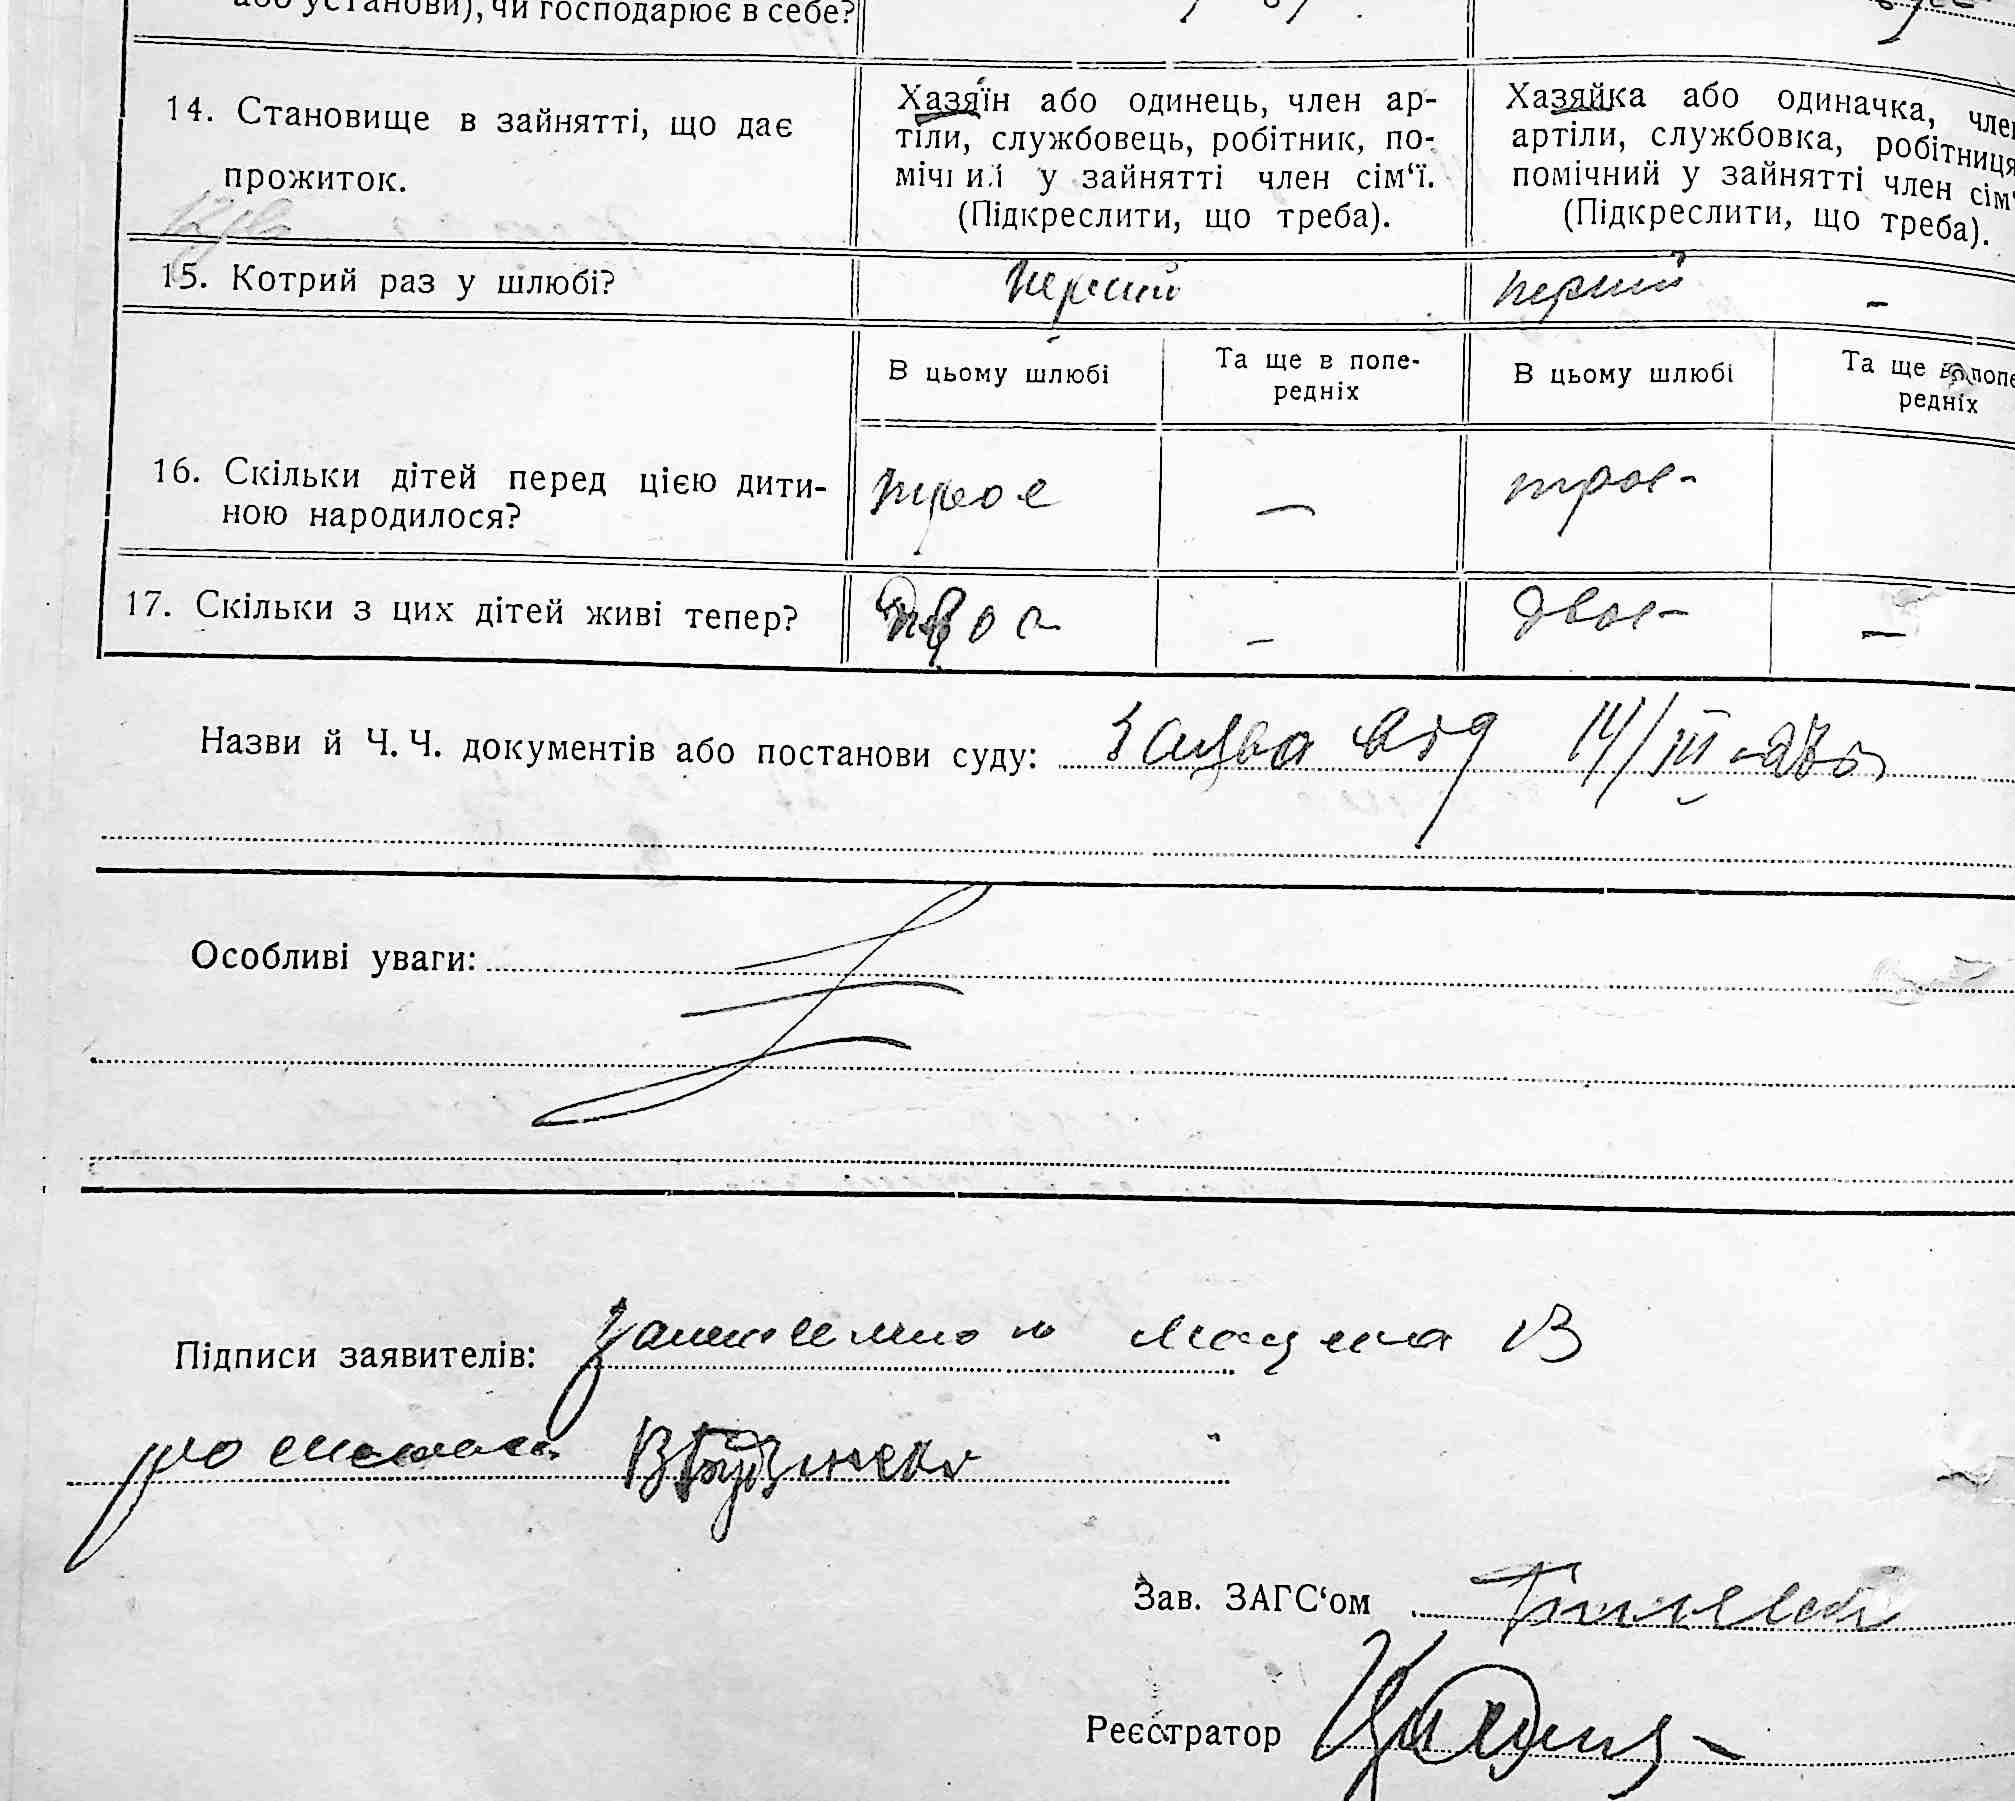 або установи), чи господарює в себе?
14. Становище в зайнятті, що дає
прожиток.
Хазяїн або одинець, член ар-
тіли, службовець, робітник, по-
мічний у зайнятті член сім‘ї.
(Підкреслити, що треба).
Хазяйка або одиначка, член
артіли, службовка, робітниця
помічний у зайнятті член сім‘
(Підкреслити, що треба).
15. Котрий раз у шлюбі?
перший
перший –
В цьому шлюбі
Та ще в попе-
редніх
В цьому шлюбі
Та ще в попе
редніх
16. Скільки дітей перед цією дити-
ною народилося?
троє
—
троє-
17. Скільки з цих дітей живі тепер?
двоє
-
двоє-
—
Назви й Ч. Ч. документів або постанови суду: Заява від 14/III
Особливі уваги:
Підписи заявителів:
Зав. ЗАГС‘ом
Реєстратор